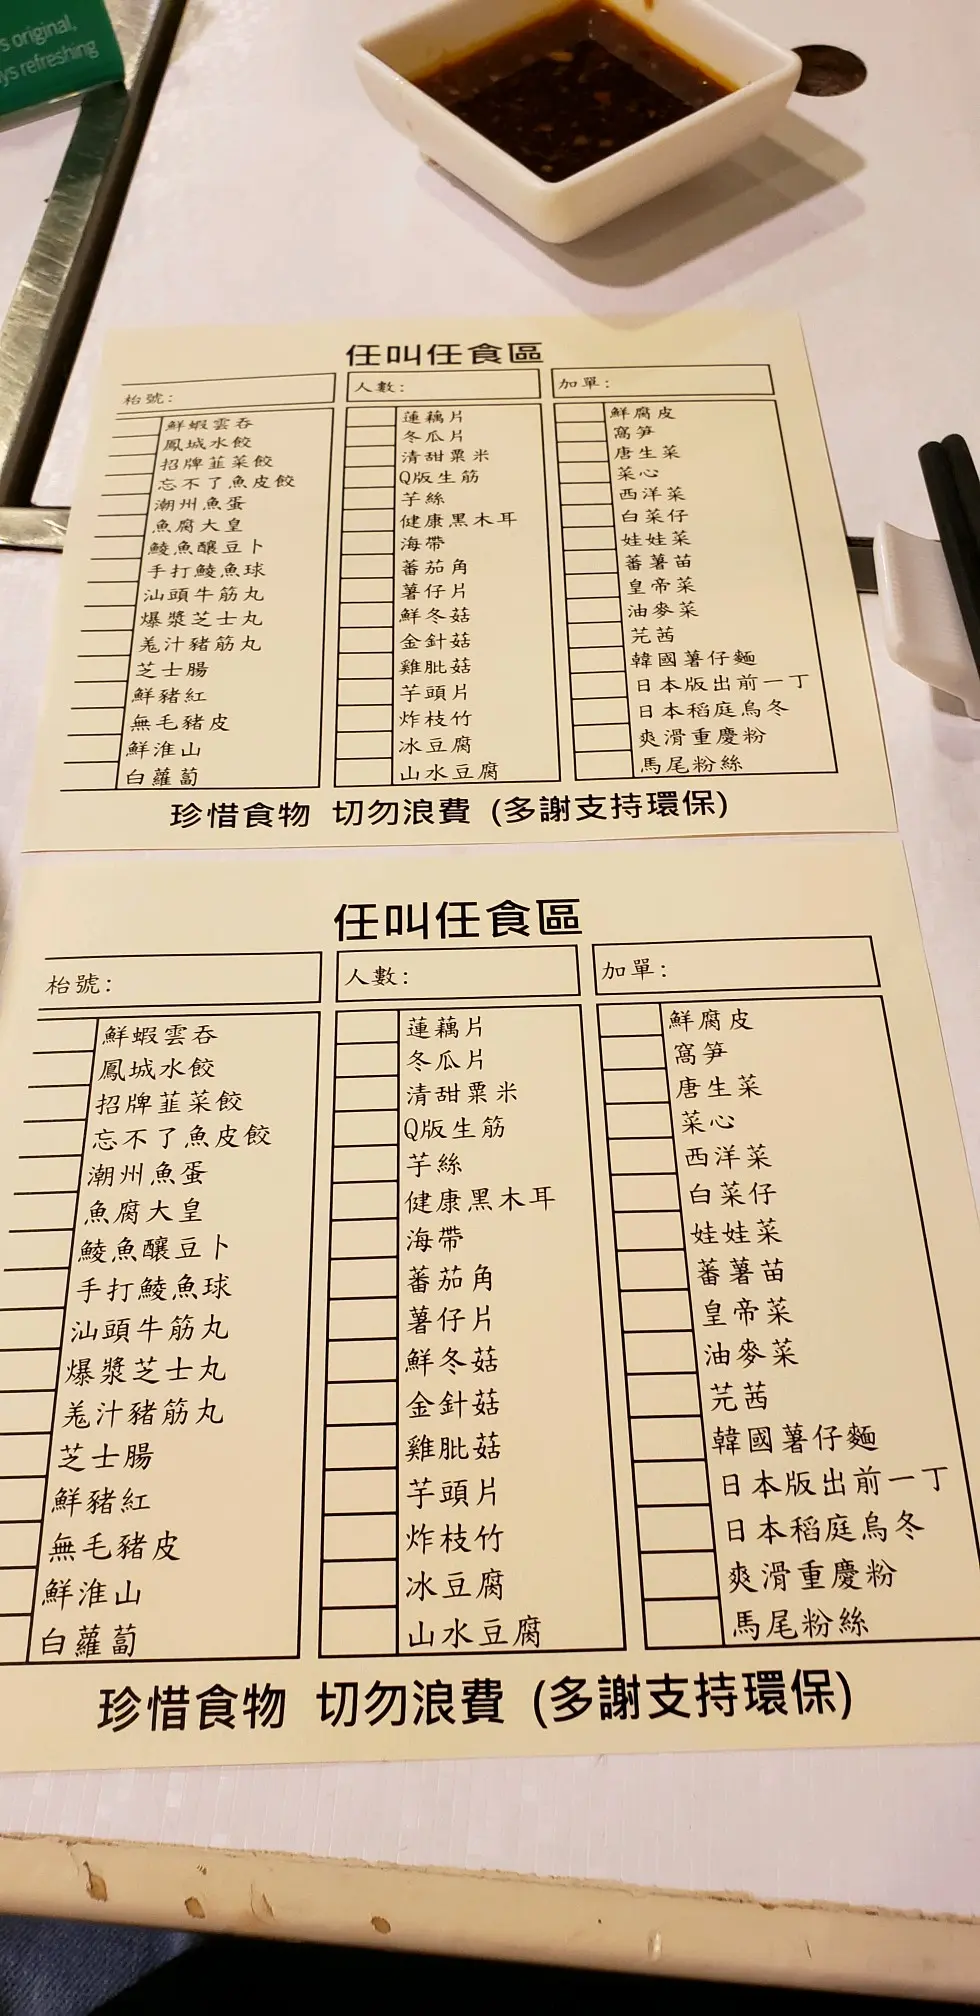 s original,
ys refreshing
任叫任食區
枱號: 人數: 加單:
鮮蝦雲吞 蓮藕片 鮮腐皮
鳳城水餃 冬瓜片 窩笋
招牌韮菜餃 清甜粟米 唐生菜
忘不了魚皮餃 Q版生筋 菜心
潮州魚蛋 芋絲 西洋菜
魚腐大皇 健康黑木耳 白菜仔
鯪魚釀豆卜 海帶 娃娃菜
手打鯪魚球 蕃茄角 蕃薯苗
汕頭牛筋丸 薯仔片 皇帝菜
爆漿芝士丸 鮮冬菇 油麥菜
羗汁豬筋丸 金針菇 芫茜
芝士腸 雞肶菇 韓國薯仔麵
鮮豬紅 芋頭片 日本版出前一丁
無毛豬皮 炸枝竹 日本稻庭烏冬
鮮淮山 冰豆腐 爽滑重慶粉
白蘿蔔 山水豆腐 馬尾粉絲
珍惜食物 切勿浪費 (多謝支持環保)
任叫任食區
枱號: 人數: 加單:
鮮蝦雲吞 蓮藕片 鮮腐皮
鳳城水餃 冬瓜片 窩笋
招牌韮菜餃 清甜粟米 唐生菜
忘不了魚皮餃 Q版生筋 菜心
潮州魚蛋 芋絲 西洋菜
魚腐大皇 健康黑木耳 白菜仔
鯪魚釀豆卜 海帶 娃娃菜
手打鯪魚球 蕃茄角 蕃薯苗
汕頭牛筋丸 薯仔片 皇帝菜
爆漿芝士丸 鮮冬菇 油麥菜
羗汁豬筋丸 金針菇 芫茜
芝士腸 雞肶菇 韓國薯仔麵
鮮豬紅 芋頭片 日本版出前一丁
無毛豬皮 炸枝竹 日本稻庭烏冬
鮮淮山 冰豆腐 爽滑重慶粉
白蘿蔔 山水豆腐 馬尾粉絲
珍惜食物 切勿浪費 (多謝支持環保)